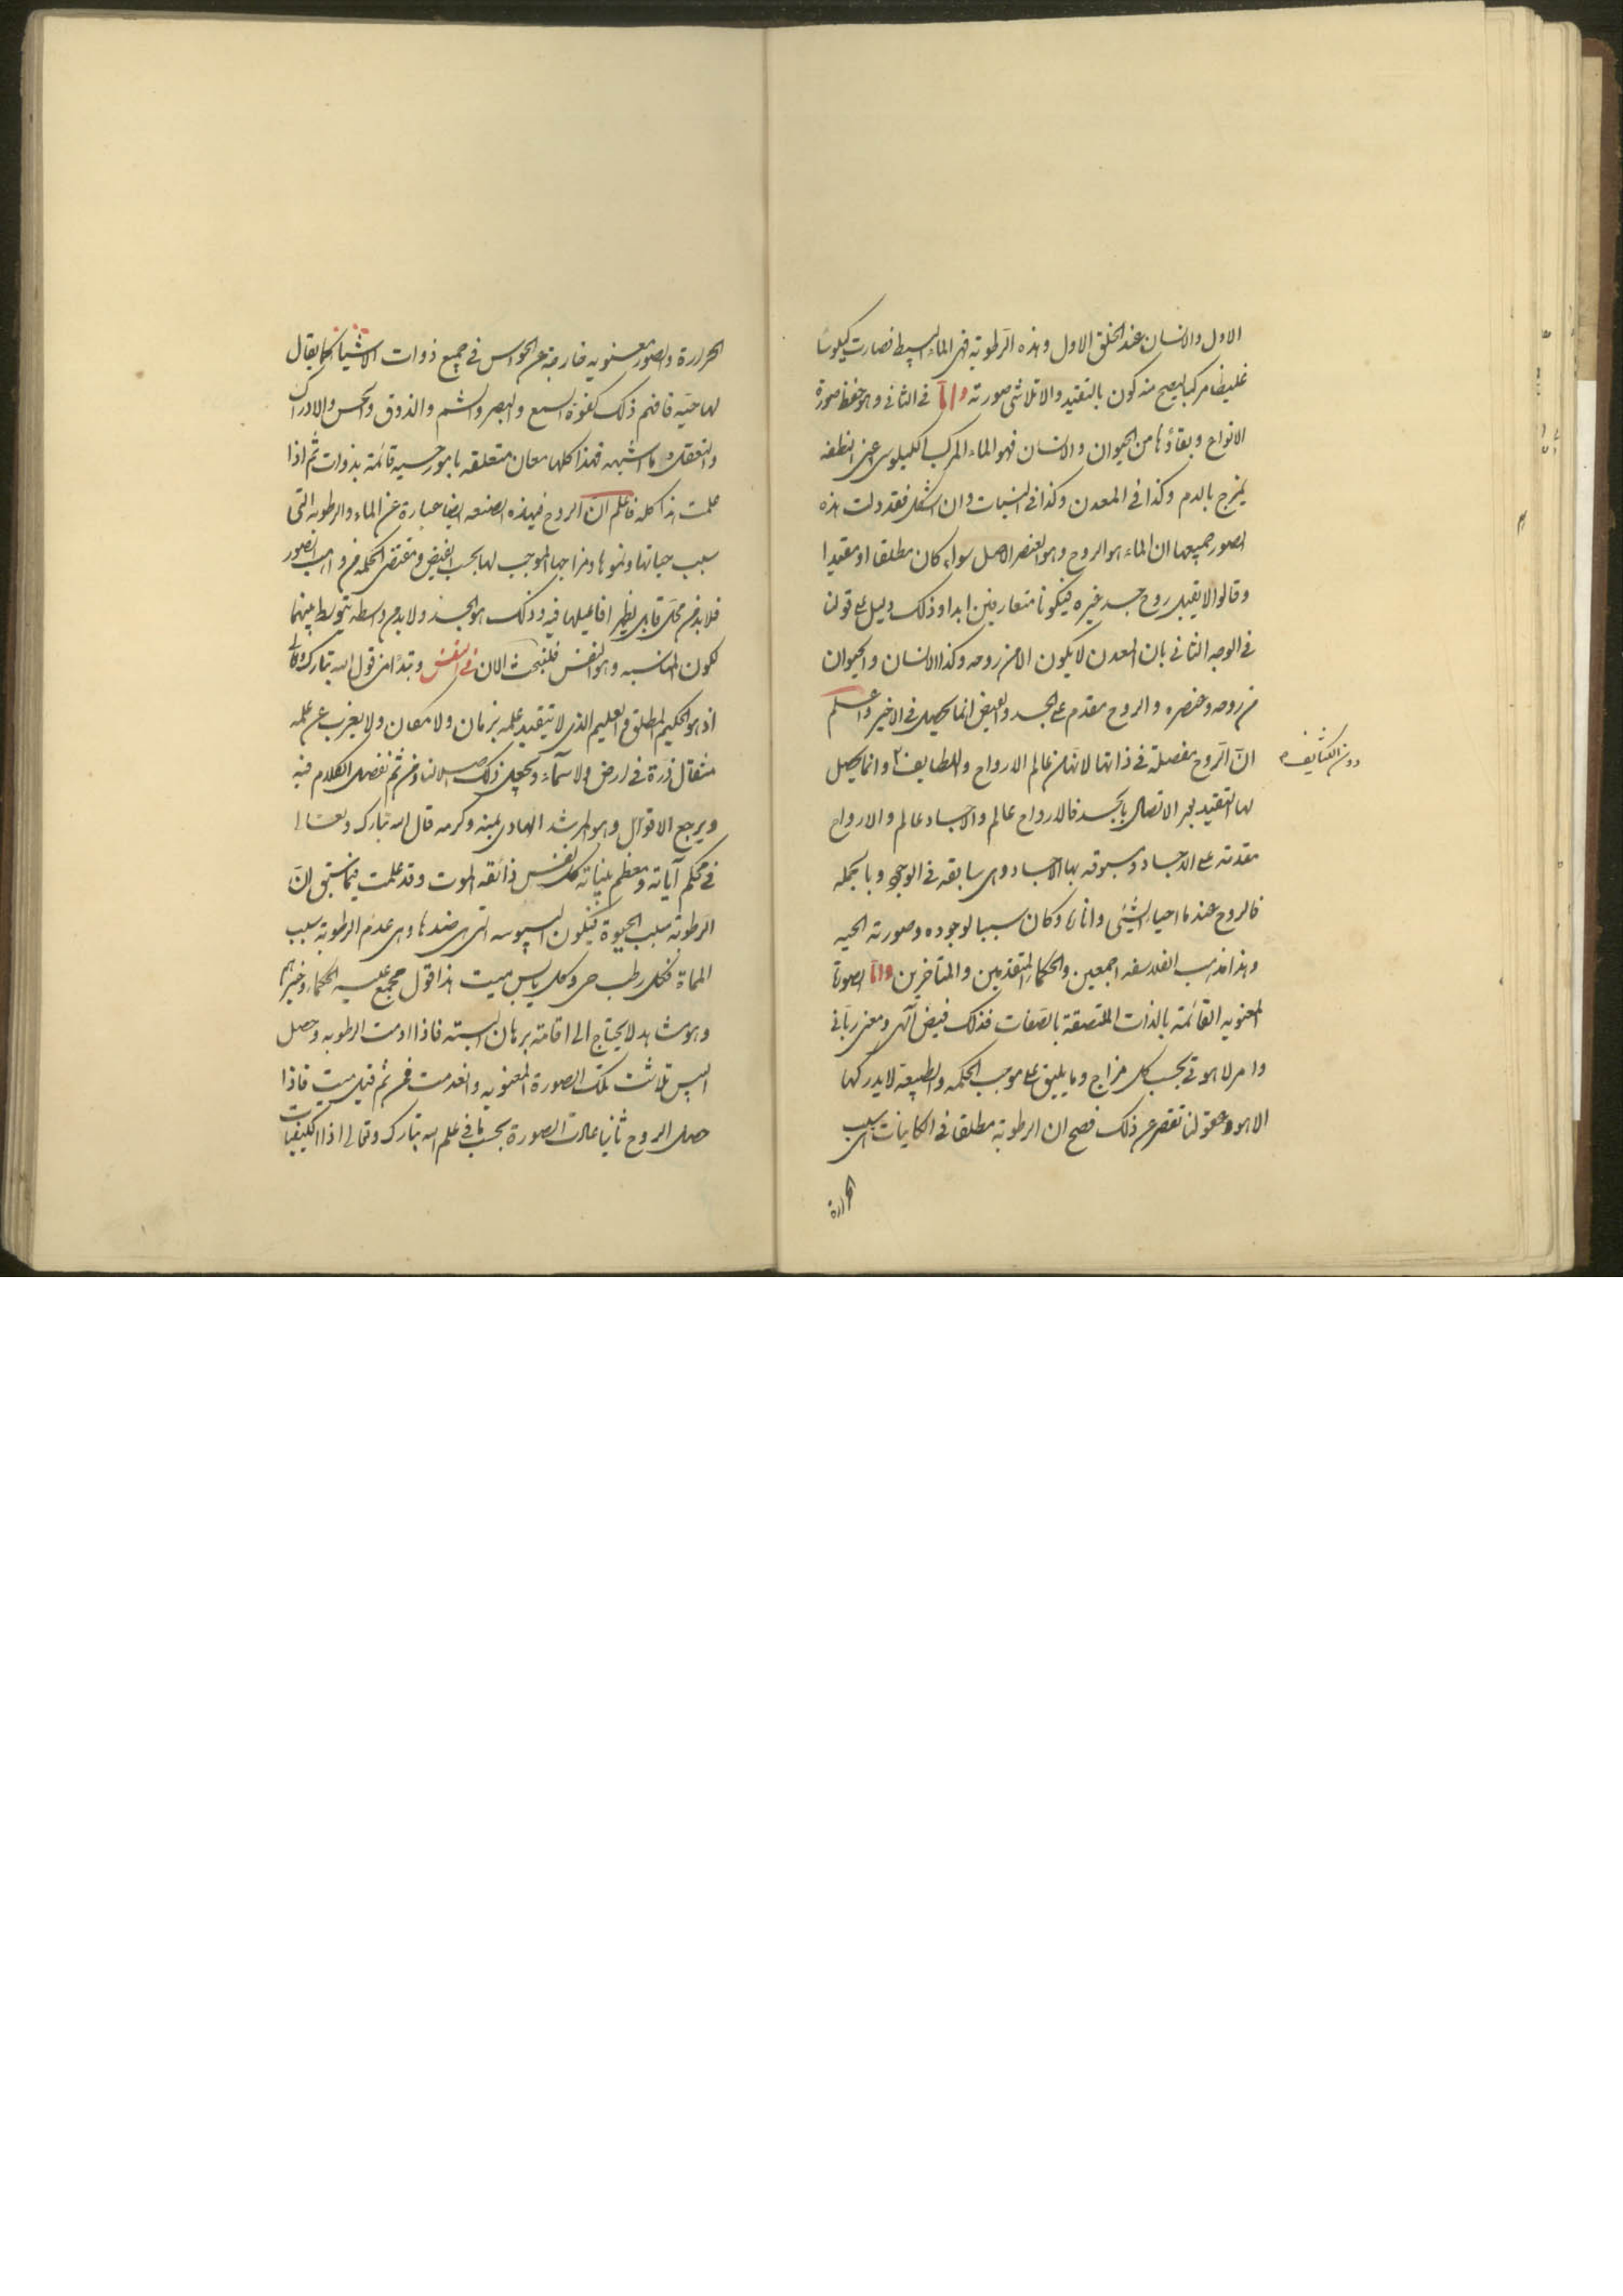 الاول والانسان عند الخلق الاول وهذه الرطوبة فهى الماء البسيط فصارت كيلوسًا
غليظا مركبا ليصح منه كون بالتقييد والا تلاشى صورته واما فى الثانى وهو حفظ صورة
الانواع وبقاؤها من الحيوان والانسان فهو الماء المركب الكيلوسى اعنى النطفه
يمزج بالدم وكذا فى المعدن وكذا فى النبات وان اشكل فقد دلت هذه
الصور جميعها ان الماء هو الروح وهو العنصر الاصل سواء كان مطلقا او مقيدا
وقالوا لا يقبل روح جسد غيره فيكونا متعارفين ابدا وذلك دليل على قولنا
فى الوجه الثانى بان المعدن لا يكون الا من روحه وكذا الانسان والحيوان
من روحه وعنصره والروح مقدم على الجسد والقبض انما يحصل فى الاخير واعلم
انّ الروح مفصلة فى ذاتها لانها من عالم الارواح واللطايف وانما يحصل
دون الكثايف
لها التقييد بعد الاتصال بالجسد فالارواح عالم والاجساد عالم والارواح
مقدمة على الاجساد ومسبوقه بها الاجساد وهى سابقه فى الوجود وبالجمله
فالروح عندما احيا الشئى وانماه وكان سببا لوجوده وصورته الحيه
وهذا مذهب الفلاسفه اجمعين والحكماء المتقدمين والمتأخرين واما الصورة
المعنويه القائمة بالذات الملتصقة بالصفات فذلك فيض آلهى ومعنى ربانى
وامر لاهوتى بحسب كل مزاج وما يليق على موجب الحكمه والطبيعة لا يدركها
الا هو وعقولنا تقصر عن ذلك فصح ان الرطوبة مطلقا فى الكاينات هى سبب
الحرارة
الحرارة والصور معنويه خارجة عن الحواس فى جميع ذوات الاشيا كما يقال
لها حيّه فافهم ذلك كقوة السمع والبصر والشم والذوق والحس والادراك
والتعقل وما اشبهه فهذا كلها معان متعلقه بامور حسيه قائمة بذوات ثم اذا
علمت هذا كله فاعلم ان الروح فى هذه الصنعه ايضا عبارة عن الماء والرطوبه التى
سبب حياتها ونموها ومزاجها الموجب لها بحسب الفيض ومقتضى الحكمه من واهب الصور
فلا بد من محل قابل يظهر افاعيلها فيه وذلك هو الجسد ولا بد من واسطه يتوسط بينهما
لكون المناسبه وهو النفس فلنبحث الان فى النفس ونبدأ من قول الله تبارك وتعالى
اذ هو الحكيم المطلق والعليم الذى لا يتقيد علمه بزمان ولا مكان ولا يعزب عن علمه
مثقال ذرة فى ارض ولا سمآء ونجعل ذلك اصلا لنا ومن ثم نفصل الكلام فيه
ويرجع الاقوال وهو المرشد الهادى بمنه وكرمه قال الله تبارك وتعالى
فى محكم آياته ومعظم بيناته كل نفس ذائقه الموت وقد علمت فيما سبق انّ
الرطوبة سبب الحيوة فيكون اليبوسه التى هى ضدها وهى عدم الرطوبة سبب
المماة فكل رطب حى وكل يابس ميت هذا قول مجمع عليه الحكماء وغيرهم
وهو مشاهد لا يحتاج الى اقامة برهان البته فاذا ادمت الرطوبه وحصل
اليبس تلاشت تلك الصورة المعنويه وانعدمت فمن ثم قيل ميت فاذا
حصل الروح ثانيا عادت الصورة بحسب ما فى علم الله تبارك وتعالى اذ الكيفيات